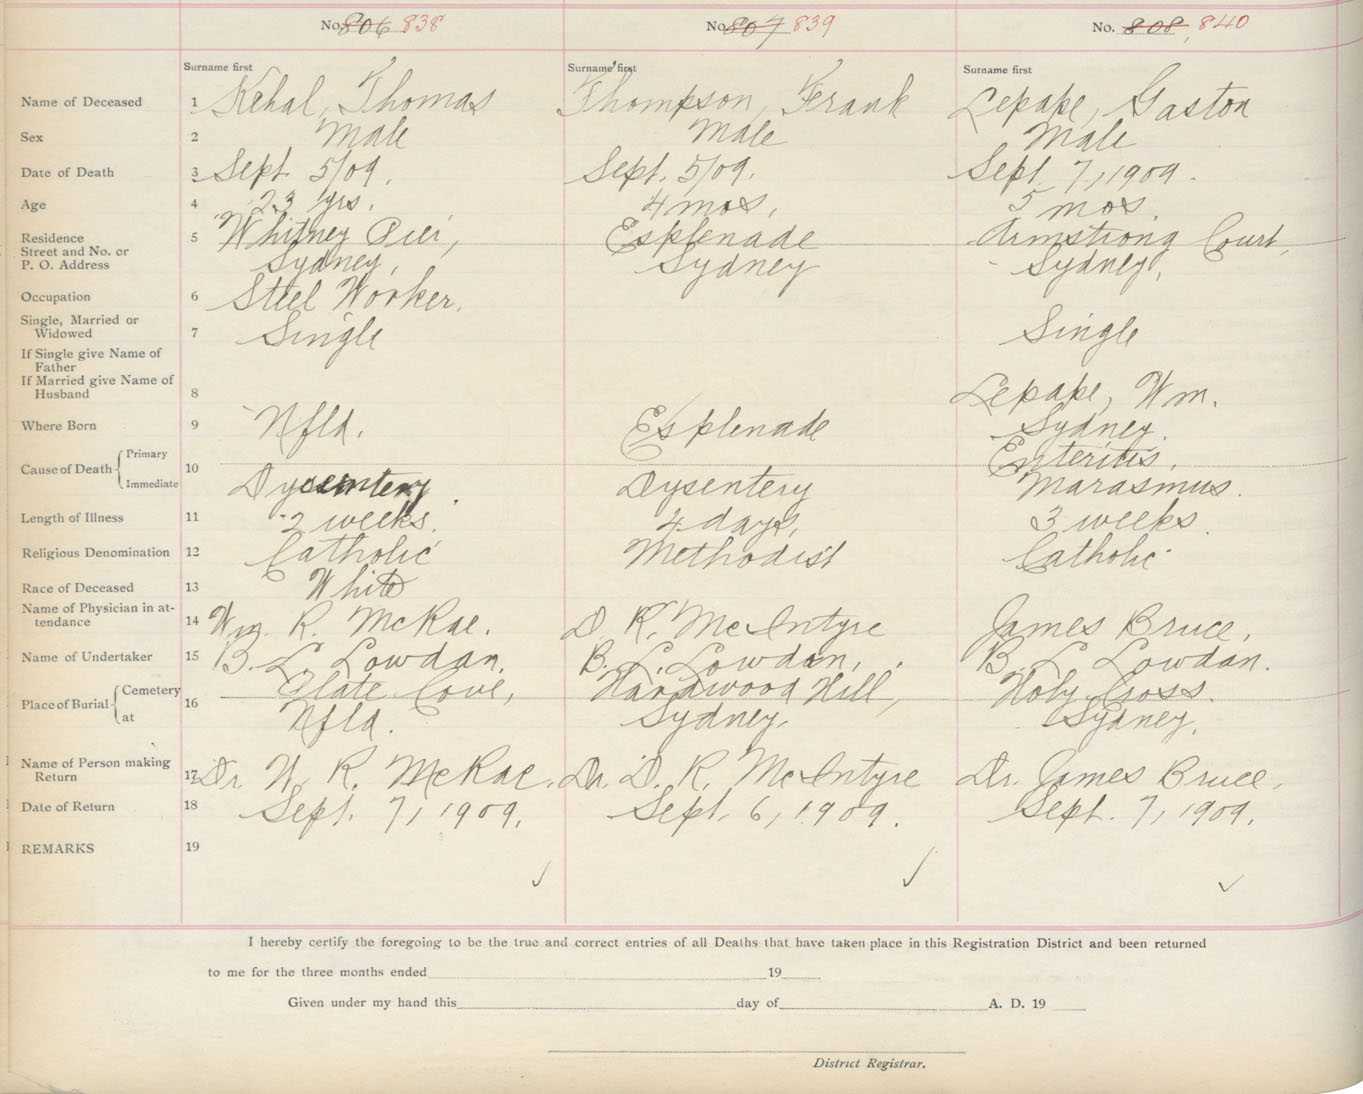 No. 806 838 No. 807 839 No. 808, 840
Surname first Surname first Surname first
Name of Deceased 1 Kehal, Thomas Thompson, Frank Lepape, Gaston
Sex 2 Male Male Male
Date of Death 3 Sept. 5/09. Sept. 5/09. Sept 7, 1909.
Age 4 23 yrs. 4 mos, 5 mos.
Residence 5 Whitney Pier, Esplenade Armstrong Court,
Street and No. or
P. O. Address Sydney, Sydney Sydney,
Occupation 6 Steel Worker.
Single, Married or
Widowed 7 Single Single
If Single give Name of
Father
If Married give Name of
Husband 8 Lepape, Wm.
Where Born 9 Nfld. Esplenade Sydney.
Cause of Death Primary 10 Enteritis,
Immediate Dysentery. Dysentery Marasmus.
Length of Illness 11 2 weeks. 4 days, 3 weeks.
Religious Denomination 12 Catholic Methodist Catholic
Race of Deceased 13 White
Name of Physician in at-
tendance 14 Wm. R. McRae. D. R. McIntyre James Bruce,
Name of Undertaker 15 B. L. Lowdan. B. L. Lowdan, B. L. Lowdan.
Place of Burial Cemetery 16 Flate Cove, Hardwood Hill, Holy Cross.
at Nfld. Sydney, Sydney.
Name of Person making
Return 17 Dr. W. R. McRae. Dr. D. R. McIntyre Dr. James Bruce,
Date of Return 18 Sept. 7, 1909. Sept. 6, 1909. Sept. 7, 1909.
REMARKS 19
I hereby certify the foregoing to be the true and correct entries of all Deaths that have taken place in this Registration District and been returned
to me for the three months ended 19
Given under my hand this day of A. D. 19
District Registrar.